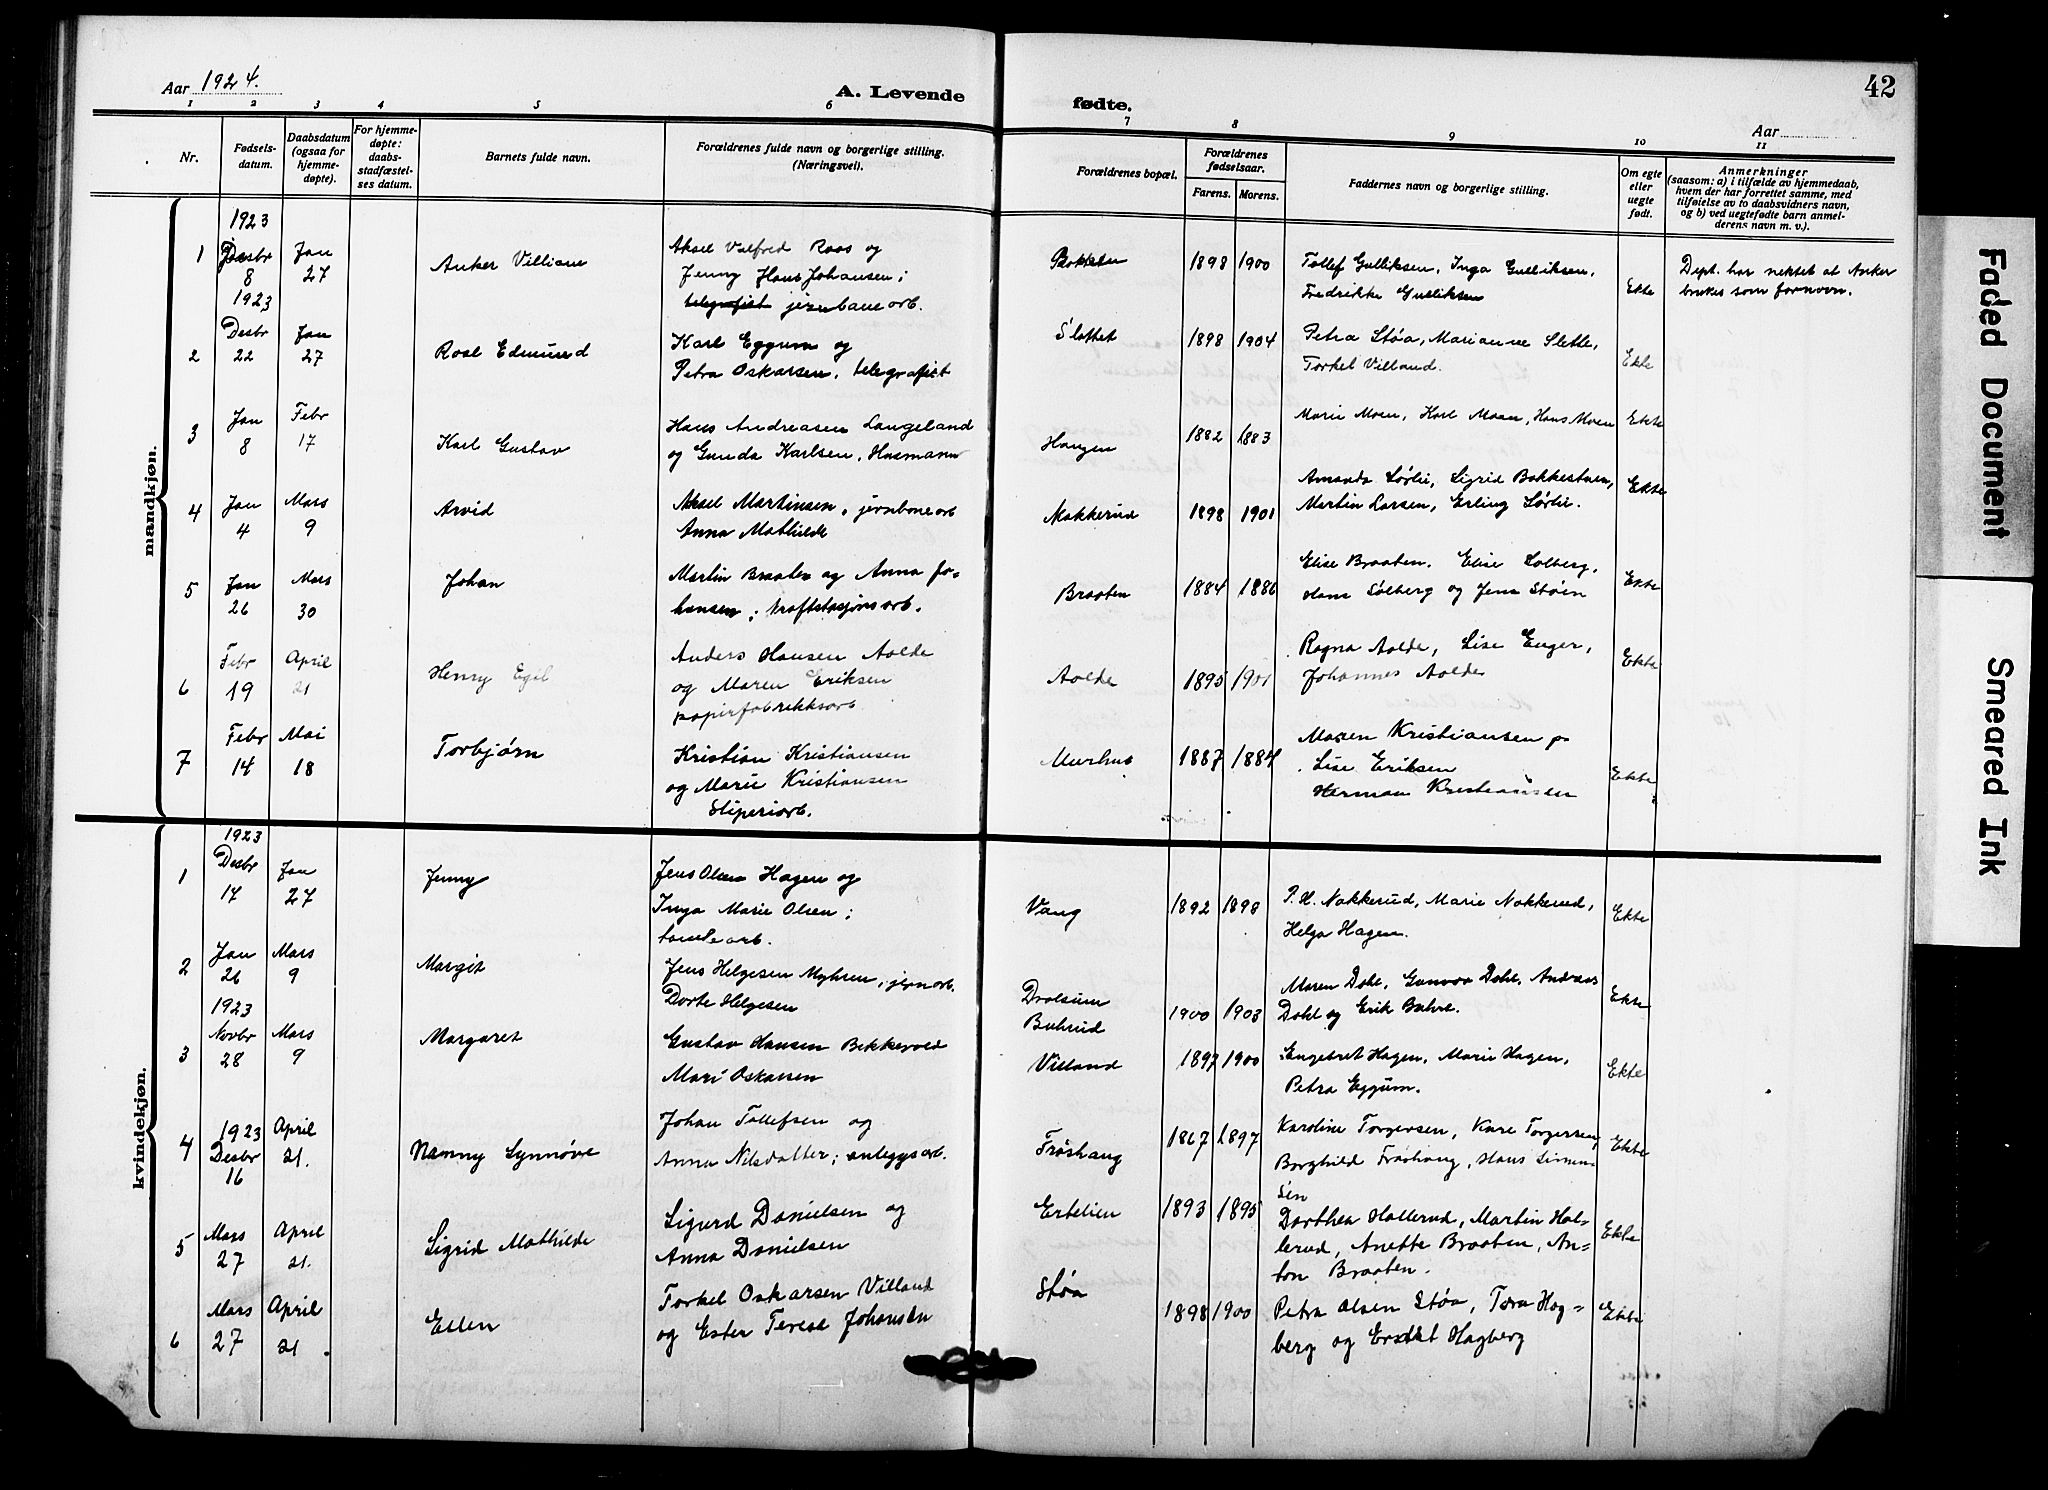 Aar 1924.
A. Levende
fødte.
42
Aar
1 2 3 4 5 6 7 8 9 10 11
Nr.
Fødsels-
datum.
Daabsdatum
(ogsaa for
hjemme-
døpte).
For hjemme-
døpte:
daabs-
stadfæstel-
ses datum.
Barnets fulde navn.
Forældrenes fulde navn og borgerlige stilling.
(Næringsvei).
Forældrenes bopæl.
Forældrenes
fødselsaar.
Farens. Morens.
Faddernes navn og borgerlige stilling.
Om egte
eller
uegte
født.
Anmerkninger
(saasom: a) i tilfælde av hjemmedaab,
hvem der har forrettet samme, med
tilføielse av to daabsvidners navn,
og b) ved uegtefødte barn anmel-
derens navn m. v.).
mandkjøn.
1923
1 Desbr 8 Jan 27 Anker Villiam
Aksel Valfred Roos og
Jenny Hans Johansen;
telegrafist jernbanearb.
Bakken 1898 1900
Tollef Gulliksen, Inga Gulliksen,
Fredrikke Gulliksen
Ekte
Dept. har nektet at Anker
brukes som fornavn.
1923
2 Desbr 22 Jan 27 Roal Edmund
Karl Eggum og
Petra Oskarsen, telegrafist
Slottet 1898 1904
Petra Støa, Marianne Slette,
Torkel Villand.
Ekte
3 Jan 8 Febr 17 Karl Gustav
Hans Andreasen Langeland
og Gunda Karlsen, Husmann
Haugen 1882 1883
Marie Moen, Karl Moen, Hans Moen
Ekte
4 Jan 4 Mars 9 Arvid
Aksel Martinsen, jernbanearb
Anna Mathilde
Nakkerud 1898 1901
Amanda Sørlie, Sigrid Bakkestuen,
Martin Larsen, Erling Sørlie.
Ekte
5 Jan 26 Mars 30 Johan
Martin Braaten og Anna Jo-
hansen; kraftstasjonsarb.
Braaten 1884 1886
Elise Braaten. Elise Solberg,
Hans Solberg og Jens Støen
Ekte
6 Febr 19 April 21 Henry Egil
Anders Hansen Aalde
og Maren Eriksen
papirfabrikksarb
Aalde 1895 1901
Ragna Aalde, Lise Enger,
Johannes Aalde
Ekte
7 Febr 14 Mai 18 Torbjørn
Kristian Kristiansen
og Marie Kristiansen
Sliperiarb.
Murhus 1887 1884
Maren Kristiansen
Lise Eriksen
Herman Kristiansen
Ekte
kvindekjøn.
1923
1 Desbr 17 Jan 27 Jenny
Jens Olsen Hagen og
Inga Marie Olsen;
tomtearb.
Vang 1892 1898
P. H. Nakkerud, Marie Nakkerud,
Helga Hagen.
Ekte
2 Jan 26 Mars 9 Margit
Jens Helgesen Myhren, jernarb.
Dorte Helgesen
Drolsum
Buhrud 1900 1903
Maren Dahl, Gunvor Dahl, Andreas
Dahl og Erik Buhrd.
Ekte
1923
3 Novbr 28 Mars 9 Margaret
Gustav Hansen Bekkevold
Mari Oskarsen
Villand 1897 1900
Engebret Hagen, Marie Hagen,
Petra Eggum.
Ekte
1923
4 Desbr 16 April 21. Nanny Synnøve
Johan Tollefsen og
Anna Nilsdatter; anleggsarb.
Frøshaug 1867 1897
Karoline Torgersen, Kare Torgersen,
Borghild Frøshaug, Hans Simen-
sen
Ekte
5 Mars 27 April 21. Sigrid Mathilde
Sigurd Danielsen og
Anna Danielsen
Ertelien 1893 1895
Dorthea Hallerud, Martin Hal-
lerud, Anette Braaten, An-
ton Braaten.
Ekte
6 Mars 27 April 21. Ellen
Torkel Oskarsen Villand
og Ester Terese Johansen
Støa 1898 1900
Petra Olsen Støa, Tora Hag-
berg og Ernst Hagberg
Ekte
Faded Document
Smeared Ink